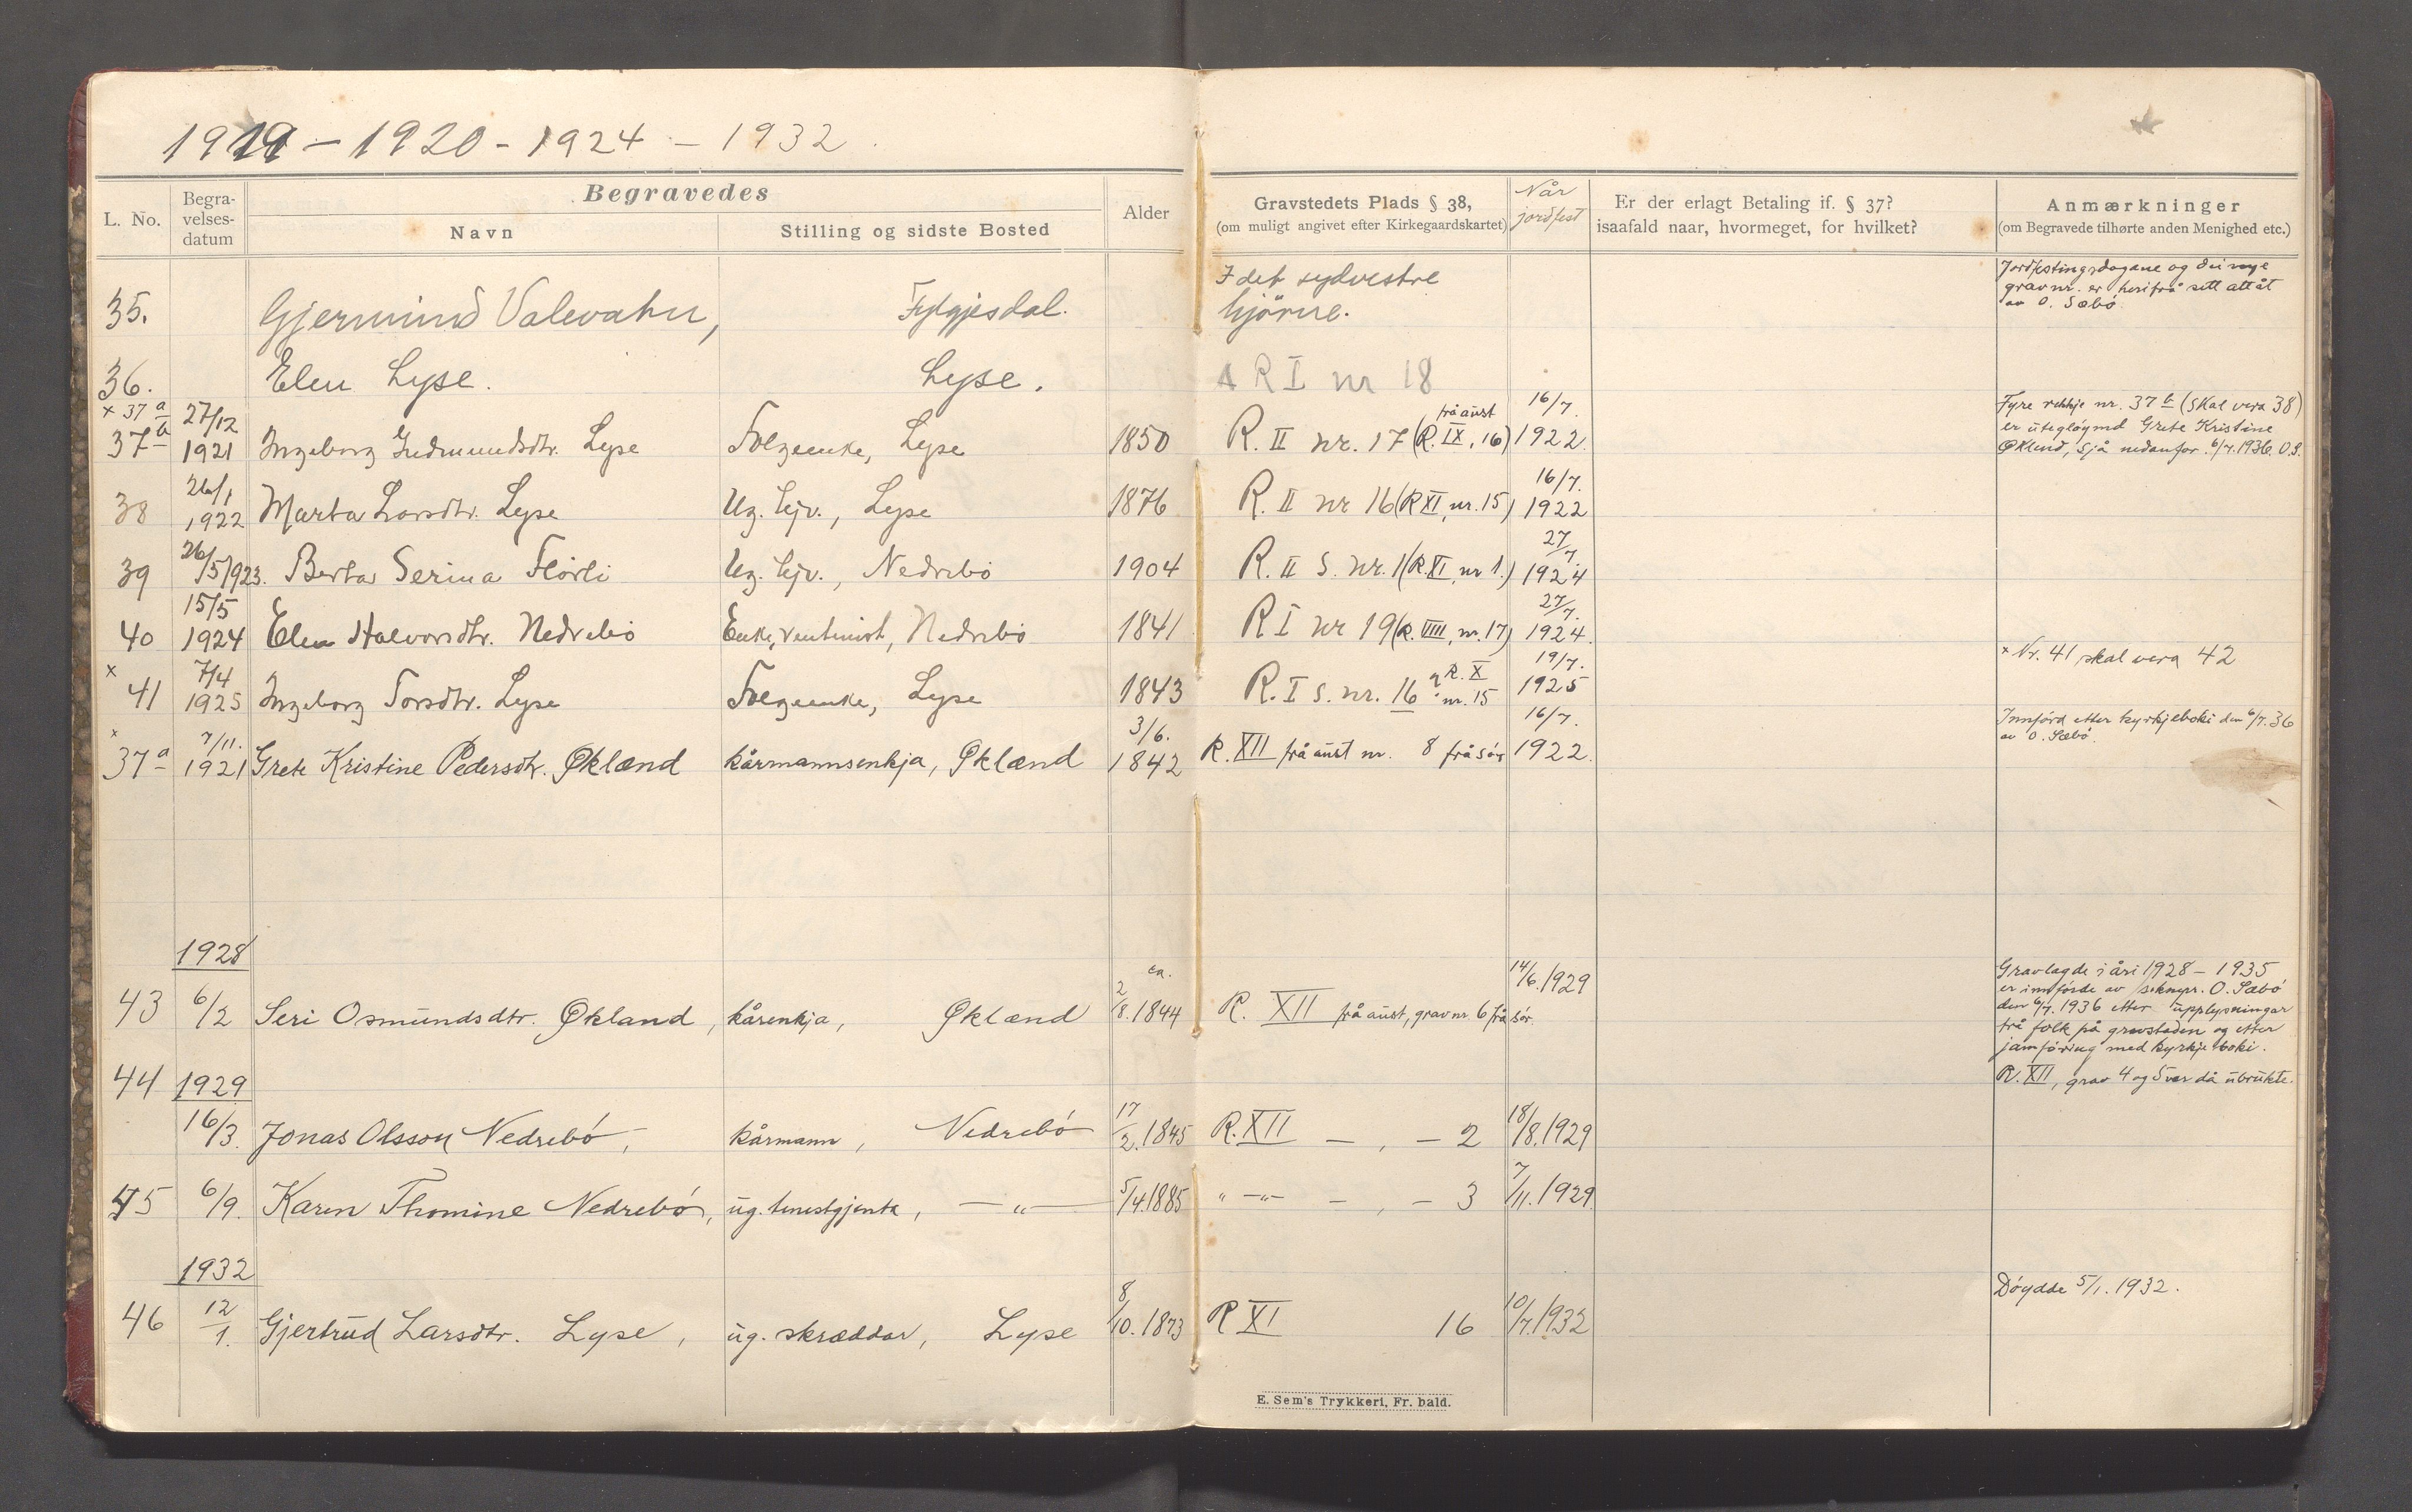 1919 - 1920 - 1924 - 1932
L. No.
Begra-
velses-
datum
Begravedes
Navn
Stilling og sidste Bosted
Alder
Gravstedets Plads § 38,
(om muligt angivet efter Kirkegaardskartet)
Når
jordfest
Er der erlagt Betaling if. § 37?
isaafald naar, hvormeget, for hvilket?
Anmærkninger
(om Begravede tilhørte anden Menighed etc.)
I det sydvestre
Jordfestingsdagane og dei nye
gravnr. er herifrå sett attåt
av O. Sæbö.
35. Gjermund Valevatn, Fylgjesdal. hjörne.
36. Elen Lyse. Lyse. R I nr 18
x 37 a 27/12 frå aust 16/7.
Fyre rekkje nr. 37 b (skal vera 38)
er uteglöymd Grete Kristine
Økland, sjå nedanfor. 6/7.1936. O.S.
37 1921 Ingeborg Gudmundsdtr. Lyse Folgeenke, Lyse 1850 R. II nr. 17 (R. IX, 16) 1922.
26/1 16/7.
38 1922 Marta Larsdtr. Lyse Ug. tejv., Lyse 1876 R. II nr 16 (R XI, nr. 15) 1922
26/5 1923. 27/7.
39 Berta Serina Flörli Ug. tejv., Nedrebö 1904 R. II S. nr. 1 (R. XI, nr 1.) 1924
15/5 27/7.
40 1924 Elen Halvorsdtr. Nedrebö Enke, rentenist, Nedrebö 1841 R I nr 19 (R. VIIII, nr. 17) 1924.
x Nr. 41 skal vera 42
x 7/4 R. X 19/7.
41 1925 Ingeborg Torsdtr. Lyse Folgeenke, Lyse 1843 R. I S. nr. 16 nr. 15 1925
x 7/11. 3/6. 16/7.
Innförd etter kyrkjeboki den 6/7. 36
av O. Sæbö.
37 a 1921 Grete Kristine Pedersdtr. Økland kårmannsenkja, Økland 1842 R. XII frå aust nr. 8 frå sör 1922.
1928
ca. 14/6.1929
43 6/2 Seri Osmundsdtr. Økland, kårenkja, Økland 2/8.1844 R. XII frå aust, grav nr 6 frå sör.
Gravlagde i åri 1928 - 1935
er innförde av sokner. O. Sæbö
den 6/7. 1936 etter upplysningar
frå folk på gravstaden og etter
jamföring med kyrkjeboki.
R. XII, grav 4 og 5 var då ubrukte.
44 1929
16/3. Jonas Olsson Nedrebö, kårmann, Nedrebö 17/2.1845 R. XII - , - 2 18/8.1929
45 6/9. Karen Thomine Nedrebö, ug. tenestgjenta, - " - 5/4.1885 " - " - - , - 3 7/11.1929.
1932
Döydde 5/1. 1932.
46 12/1. Gjertrud Larsdtr. Lyse, ug. skræddar, Lyse 8/10. 1873 R XI 16 10/7.1932
E. Sem's Trykkeri, Fr. hald.